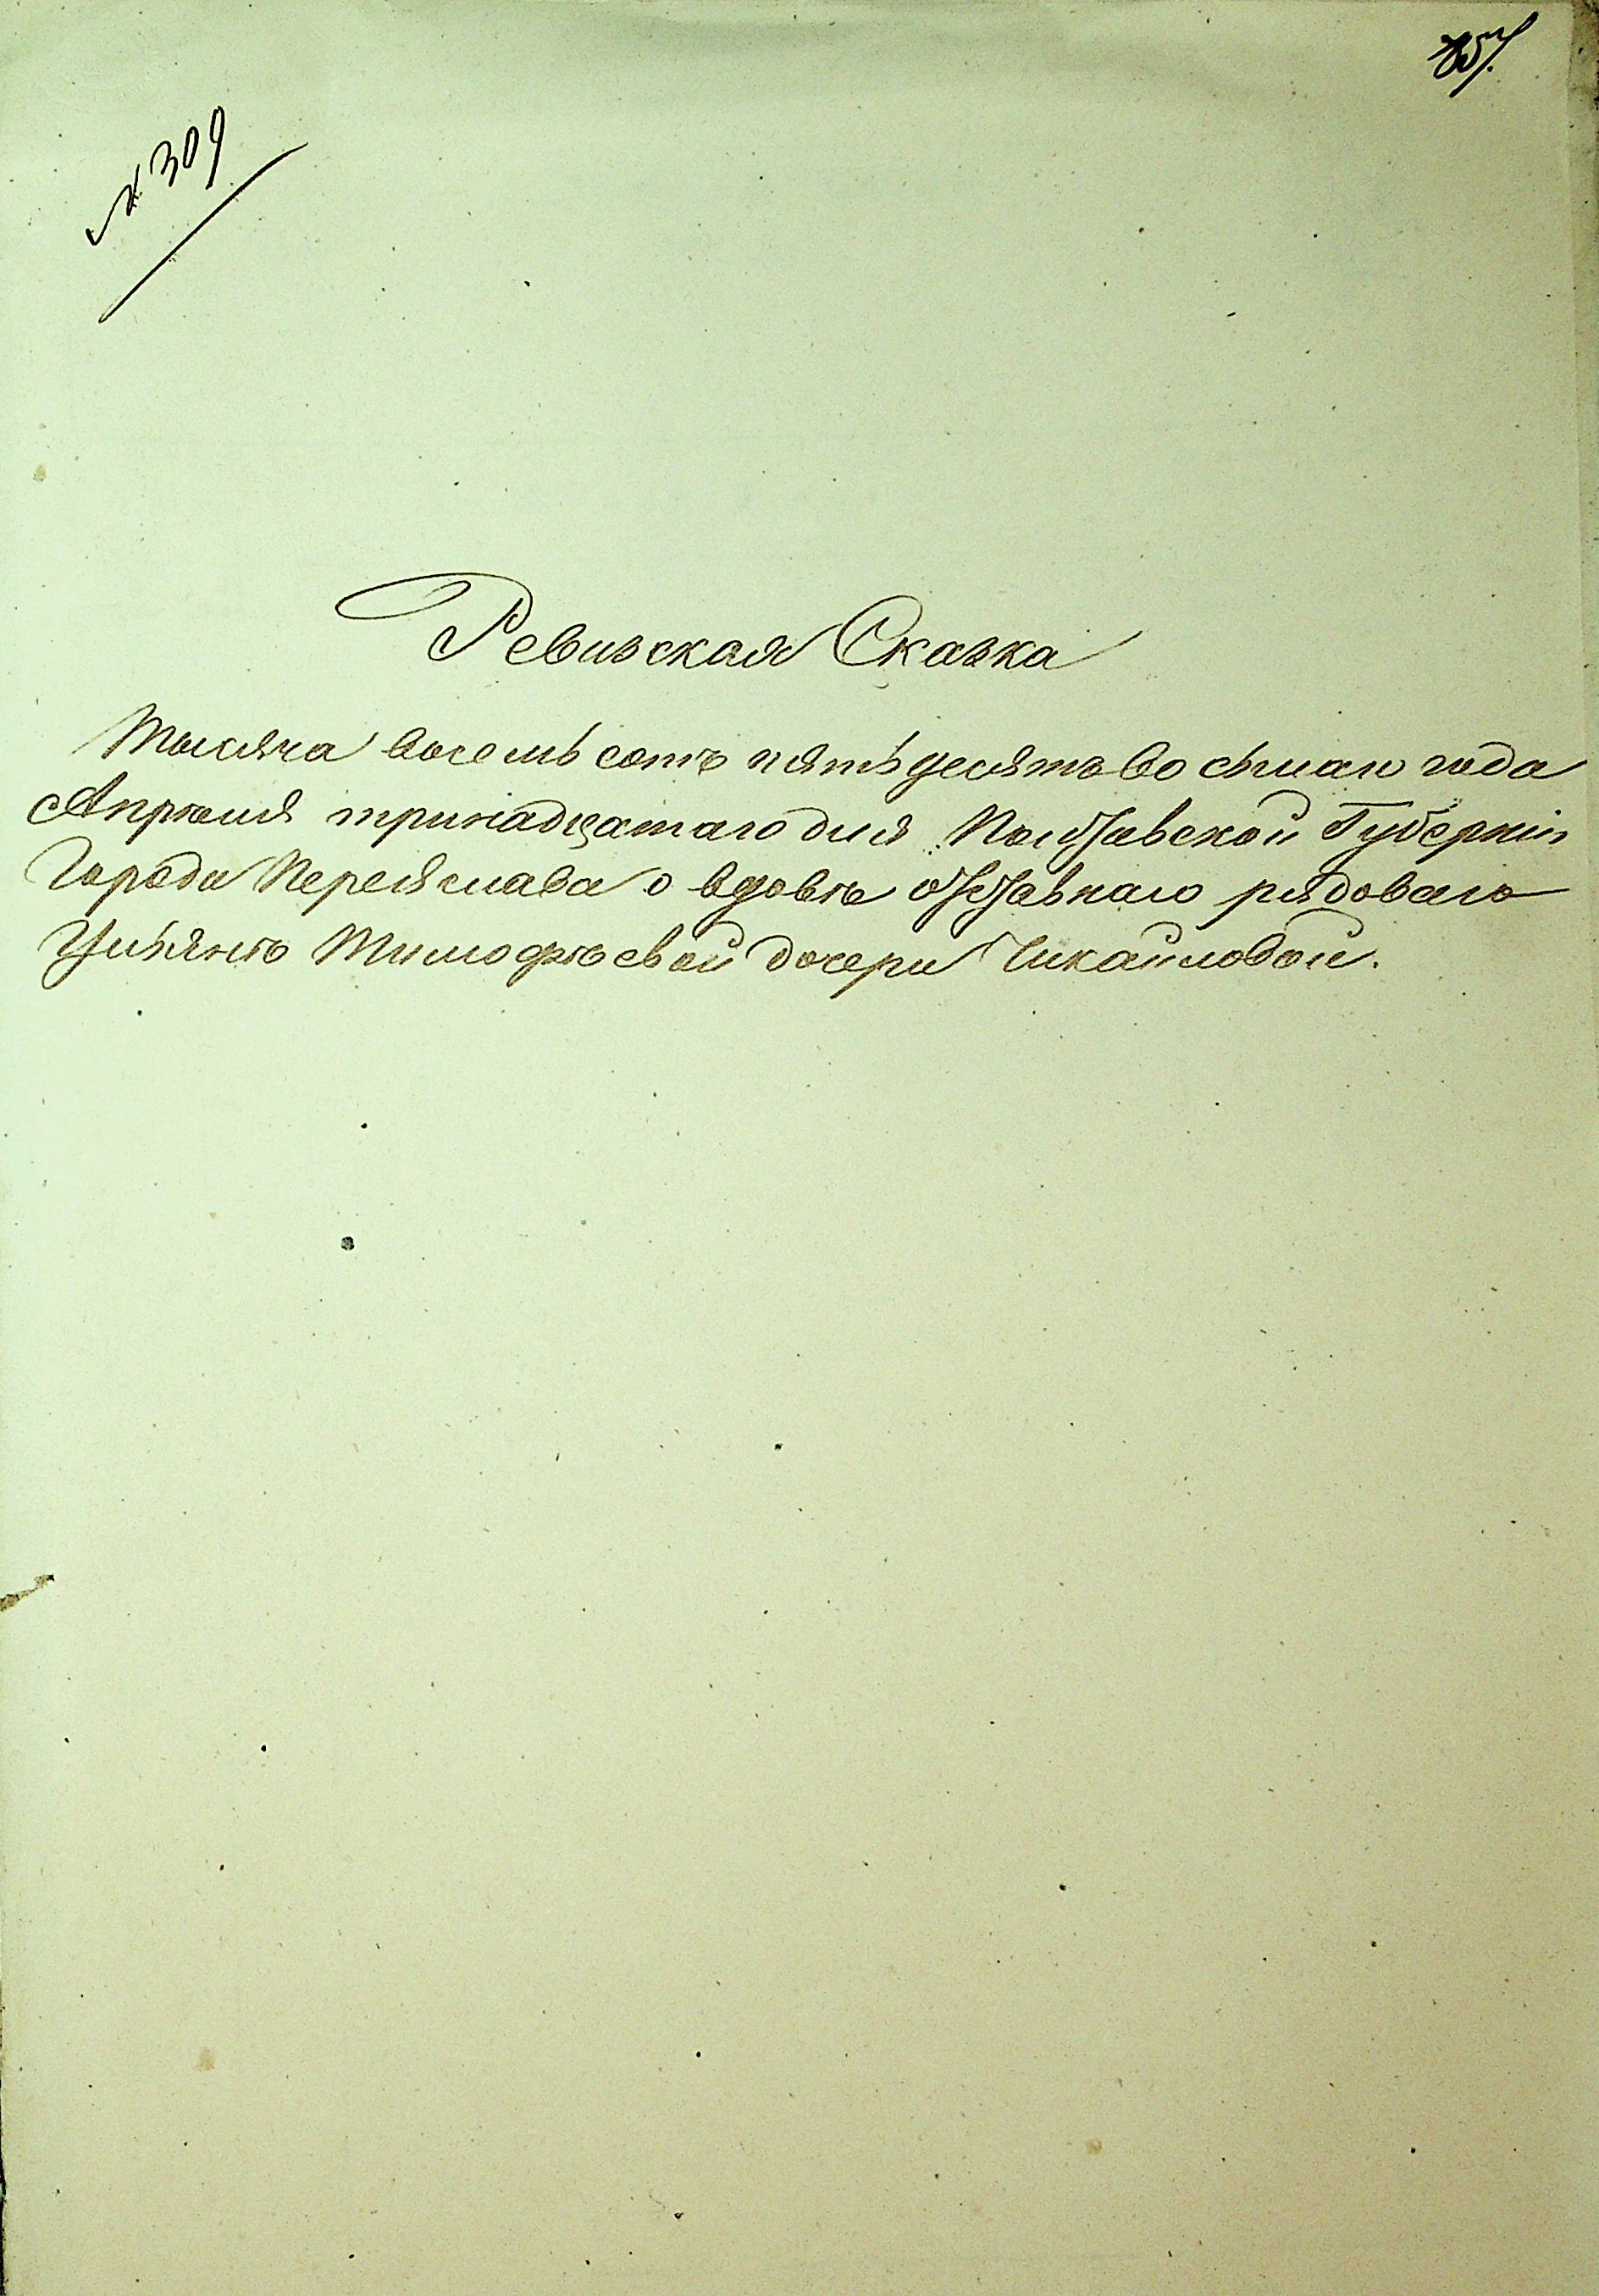 № 309
Ревизская Сказка
Тысяча восемь сотъ пятьдесятъ восьмаго года
Апрѣля тринадцатаго дня Полтавской Губерніи
Города Переяслава о вдовѣ отставнаго рядоваго
Ульянѣ Тимофѣевой дочери Чикайловой.